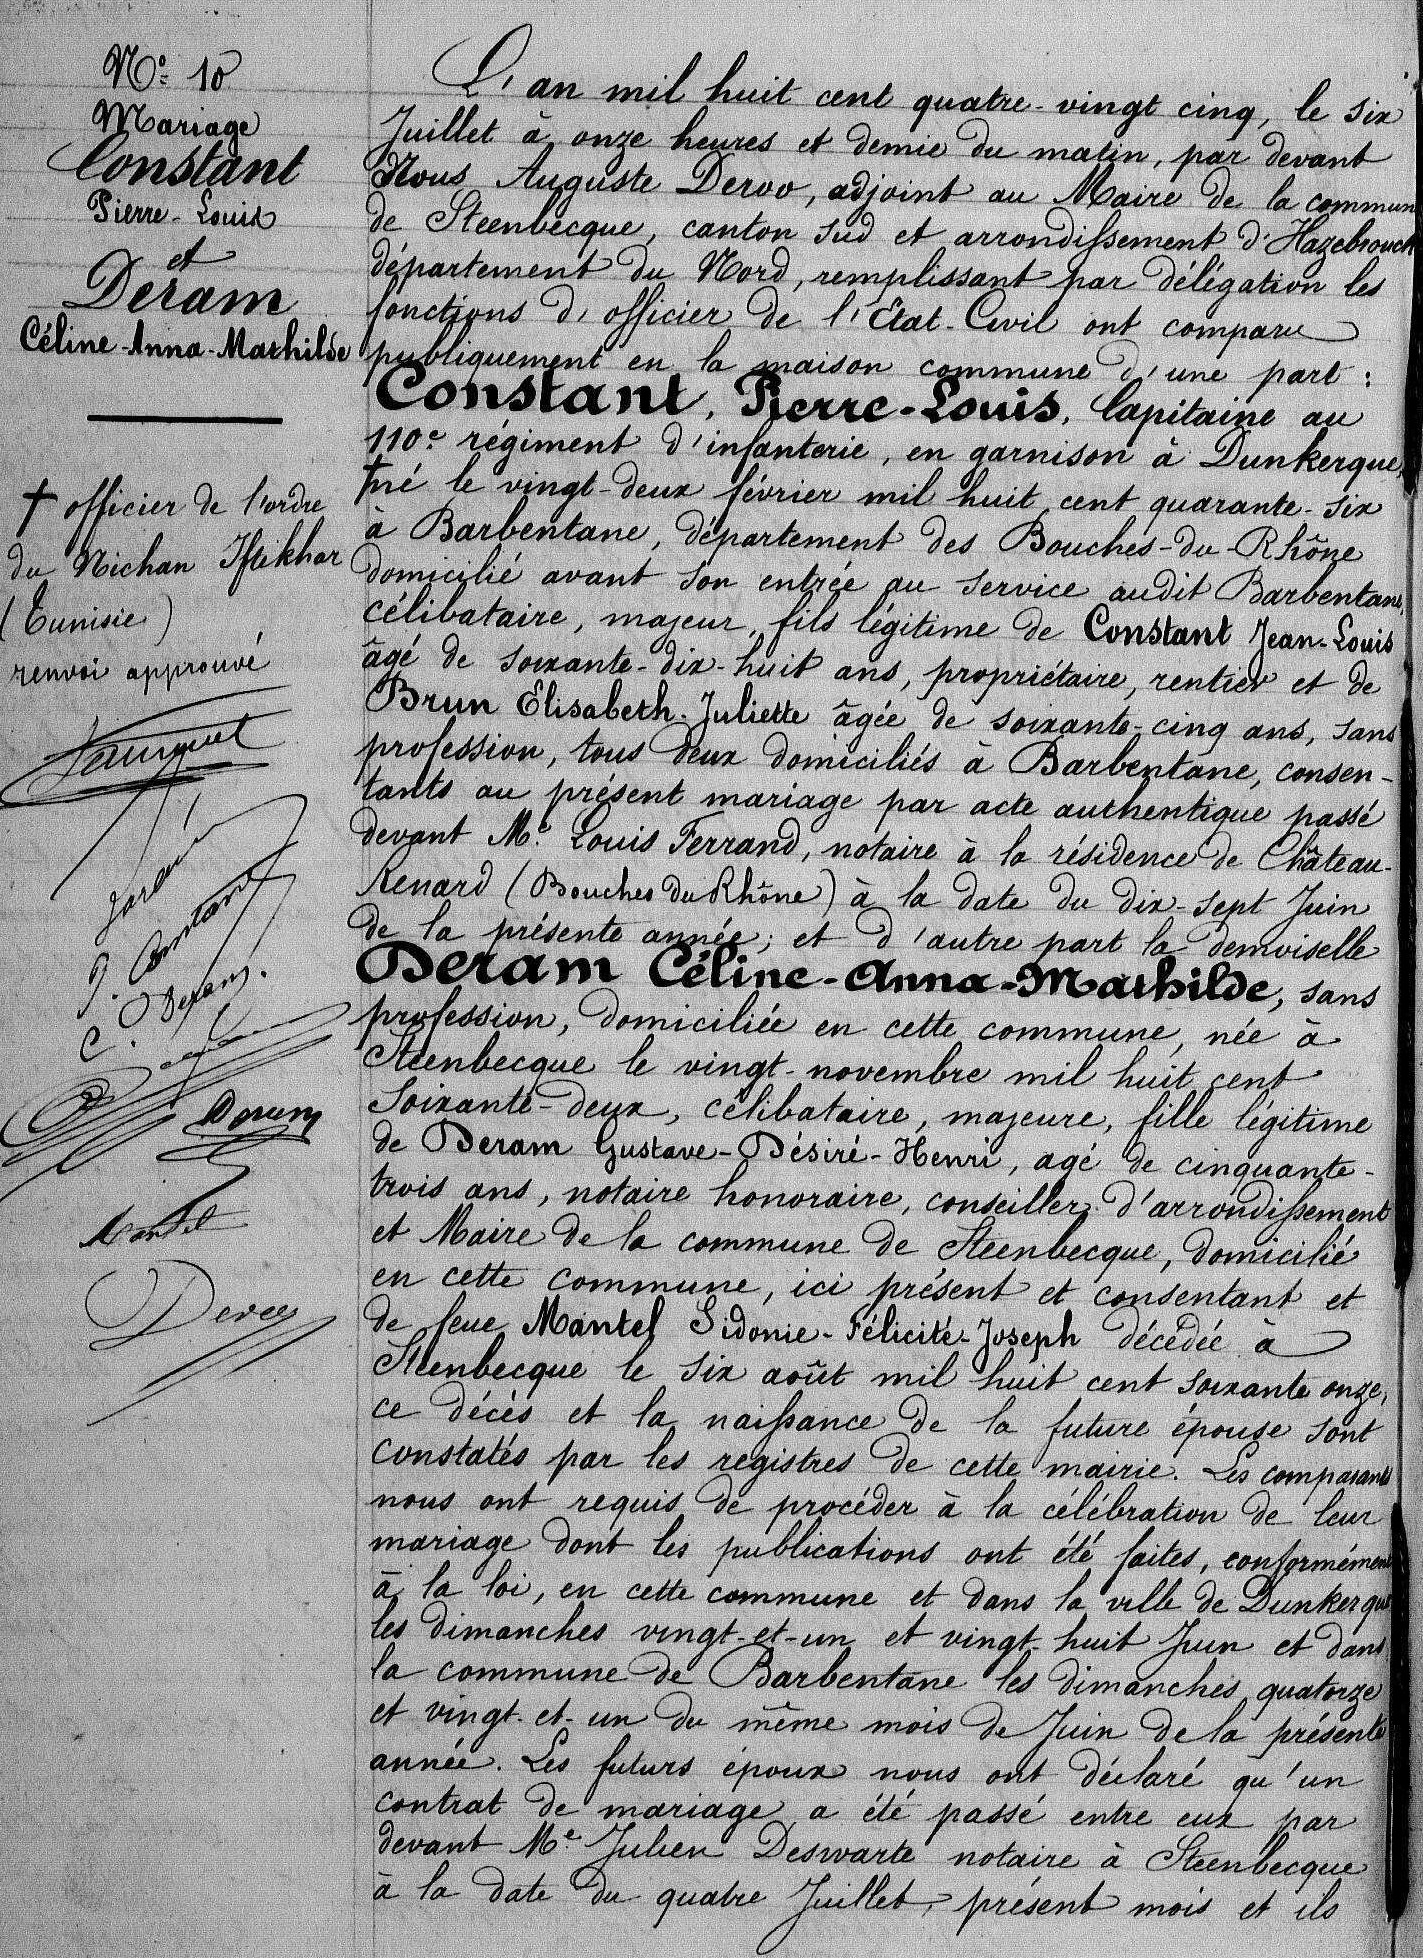 Nº 10
Mariage
Constant
Pierre-Louis
et
Deram
Céline-Anna-Mathilde
† officier de l'ordre
du Nichan Iftikhar
(Tunisie)
renvoi approuvé
P. Constant
C. Deram
Deram
Mantel
L'an mil huit cent quatre-vingt cinq, le six
Juillet à onze heures et demie du matin, par devant
Nous Auguste Devoo, adjoint au Maire de la commun
de Steenbecque, canton sud et arrondissement d'Hazebrouck
département du Nord, remplissant par délégation les
fonctions d'officier de l'Etat-Civil ont comparu
publiquement en la maison commune d'une part :
Constant, Pierre-Louis, Capitaine au
110e régiment d'infanterie, en garnison à Dunkerque,
† né le vingt-deux février mil huit cent quarante-six
à Barbentane, département des Bouches-du-Rhône
domicilié avant son entrée au service audit Barbentane,
célibataire, majeur, fils légitime de Constant Jean-Louis
âgé de soixante-dix-huit ans, propriétaire, rentier et de
Brun Elisabeth-Juliette âgée de soixante-cinq ans, sans
profession, tous deux domiciliés à Barbentane, consen-
tants au présent mariage par acte authentique passé
devant Me Louis Ferrand, notaire à la résidence de Château-
Renard (Bouches du Rhône) à la date du dix-sept Juin
de la présente année; et d'autre part la demoiselle
Deram Céline-Anna-Mathilde, sans
profession, domiciliée en cette commune, née à
Steenbecque le vingt-novembre mil huit cent
soixante-deux, célibataire, majeure, fille légitime
de Deram Gustave-Désiré-Henri, agé de cinquante-
trois ans, notaire honoraire, conseiller d'arrondissement
et Maire de la commune de Steenbecque, domicilié
en cette commune, ici présent et consentant et
de feue Mantel Sidonie-Félicité-Joseph décédée à
Steenbecque le six août mil huit cent soixante onze,
ce décès et la naissance de la future épouse sont
constatés par les registres de cette mairie. Les comparants
nous ont requis de procéder à la célébration de leur
mariage dont les publications ont été faites, conformément
à la loi, en cette commune et dans la ville de Dunkerque
les dimanches vingt-et-un et vingt-huit Juin et dans
la commune de Barbentane les dimanches quatorze
et vingt-et-un du même mois de Juin de la présente
année. Les futurs époux nous ont déclaré qu'un
contrat de mariage a été passé entre eux par
devant Me Julien Deswarte notaire à Steenbecque
à la date du quatre Juillet, présent mois et ils